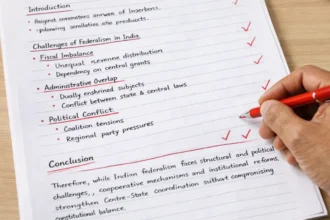 Introduction
Challenges of Federalism in India
• Fiscal Imbalance
• Unequal revenue distribution
• Dependency on central grants
• Administrative Overlap
• Dually enshrined subjects
• Conflict between state & central laws
• Political Conflict
• Coalition tensions
• Regional party pressures
Conclusion
Therefore, while Indian federalism faces structural and political
challenges, cooperative mechanisms and institutional reforms,
strengthen Centre-State coordination without compromising
constitutional balance.